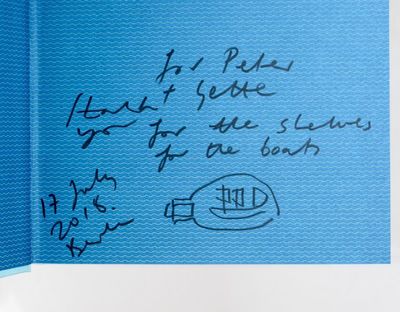 for Peter
+
Thank
you for the shelves
for the boats
17 July
2018.